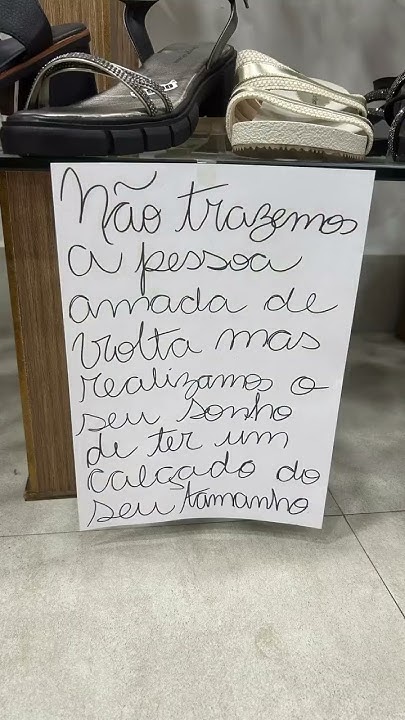 Não trazemos
a pessoa
amada de
volta mas
realizamos o
seu sonho
de ter um
calçado do
seu tamanho